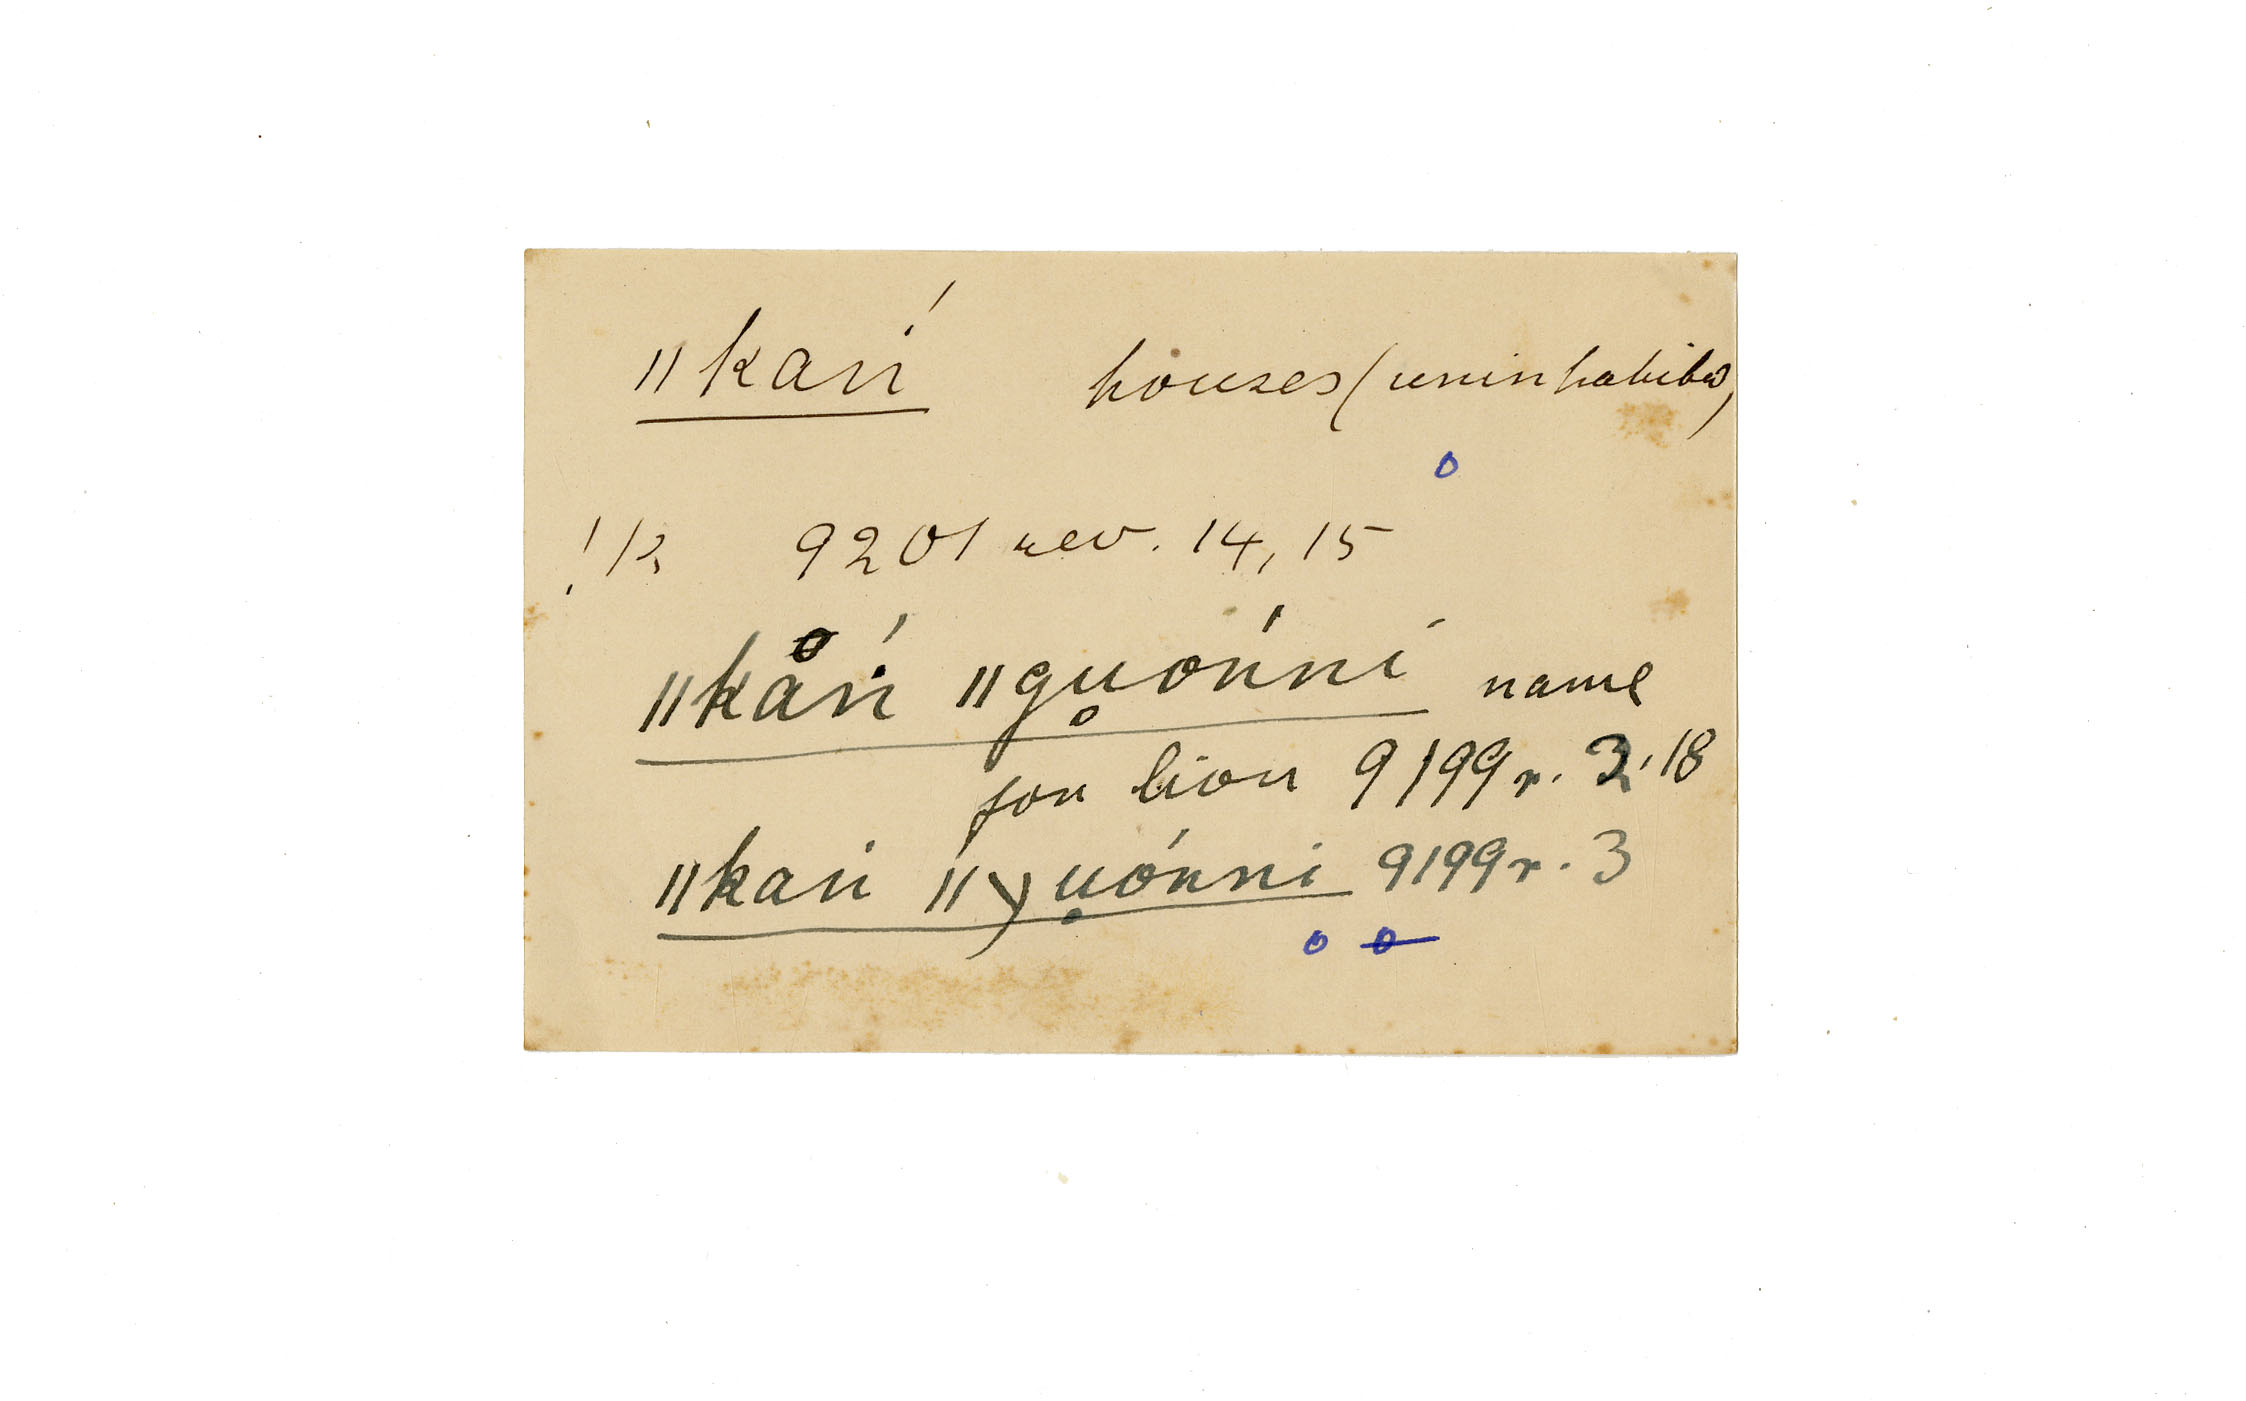 ǁkań houses (uninhabited)
!k 9201 rev. 14, 15
ǁkåń ǁgu̥ońni name
for lion 9199 r. 3.18
ǁkań ǁγu̥ónni 9199 r. 3